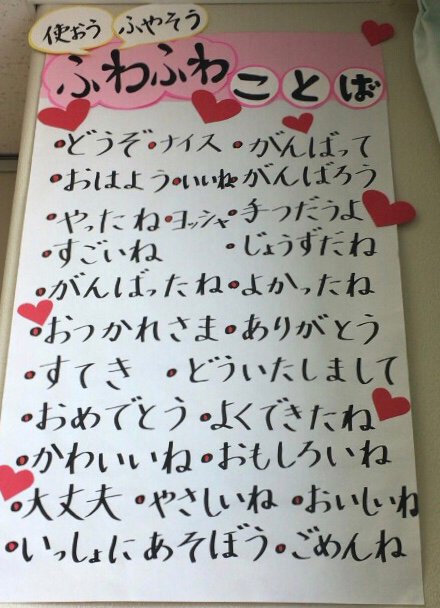 使おう ふやそう
ふわふわことば
・どうぞ・ナイス・がんばって
・おはよう・いいね・がんばろう
・やったね・ヨッシャ・手つだうよ
・すごいね・じょうずだね
・がんばったね・よかったね
・おつかれさま・ありがとう
・すてき・どういたしまして
・おめでとう・よくできたね
・かわいいね・おもしろいね
・大丈夫・やさしいね・おいしいね
・いっしょにあそぼう・ごめんね